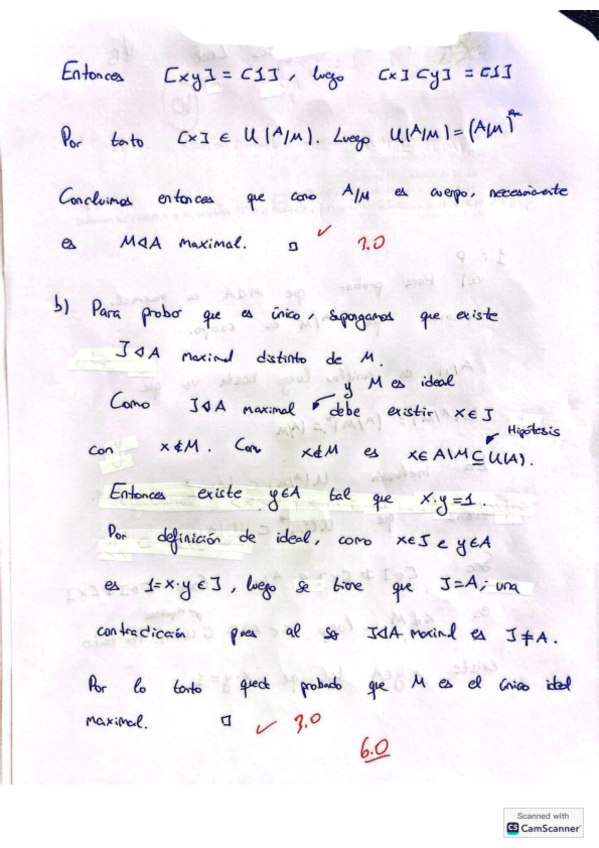 Entonces [xy] = [1], luego [x][y] = [1]
Por tanto [x] ∈ U(A/M). Luego U(A/M) = (A/M)
Concluimos entonces que como A/M es cuerpo, necesariamente
es M◁A maximal. □ ✓ 3.0
b) Para probar que es único, supongamos que existe
J◁A maximal distinto de M.
y M es ideal
Como J◁A maximal debe existir x∈J
Hipótesis
con x∉M. Como x∉M es x∈A\M⊆U(A).
Entonces existe y∈A tal que x·y=1.
Por definición de ideal, como x∈J e y∈A
es 1=x·y∈J, luego se tiene que J=A; una
contradicción pues al ser J◁A maximal es J≠A.
Por lo tanto queda probado que M es el único ideal
maximal. □ ✓ 3.0
6.0
Scanned with
CS CamScanner